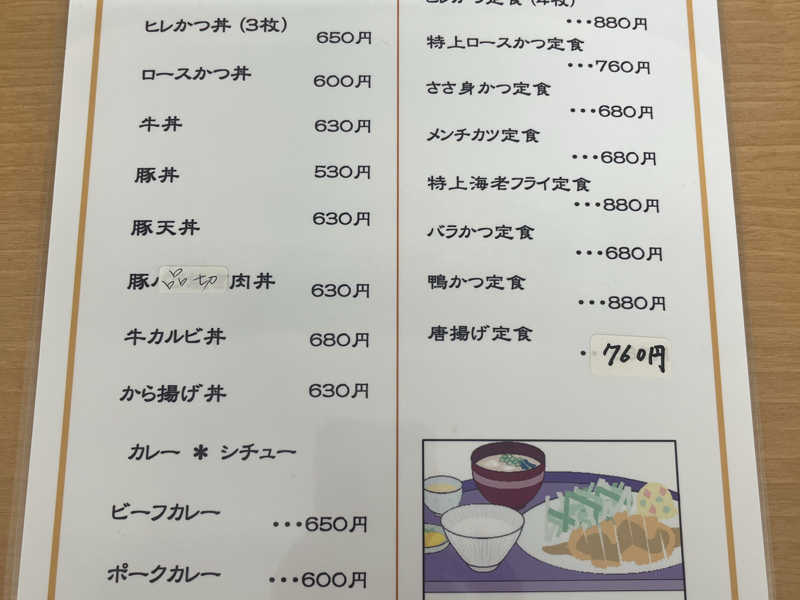 ヒレかつ丼(3枚) 650円
ロースかつ丼 600円
牛丼 630円
豚丼 530円
豚天丼 630円
豚 品切 肉丼 630円
牛カルビ丼 680円
から揚げ丼 630円
カレー * シチュー
ビーフカレー ・・・650円
ポークカレー ・・・600円
ヒレかつ定食(4枚) ・・・880円
特上ロースかつ定食 ・・・760円
ささ身かつ定食 ・・・680円
メンチカツ定食 ・・・680円
特上海老フライ定食 ・・・880円
バラかつ定食 ・・・680円
鴨かつ定食 ・・・880円
唐揚げ定食 ・760円